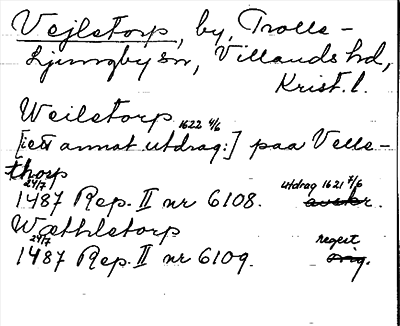 Vejletorp, by, Trolle-
Ljungby sn, Villands hd,
Krist. l.
Weiletorp 1622 4/6
[i ett annat utdrag:] paa Velle-
thorp
24/7 utdrag 1621 7/6
1487 Rep. II nr 6108. avskr.
Wæthletorp
24/7 regest
1487 Rep. II nr 6109. orig.